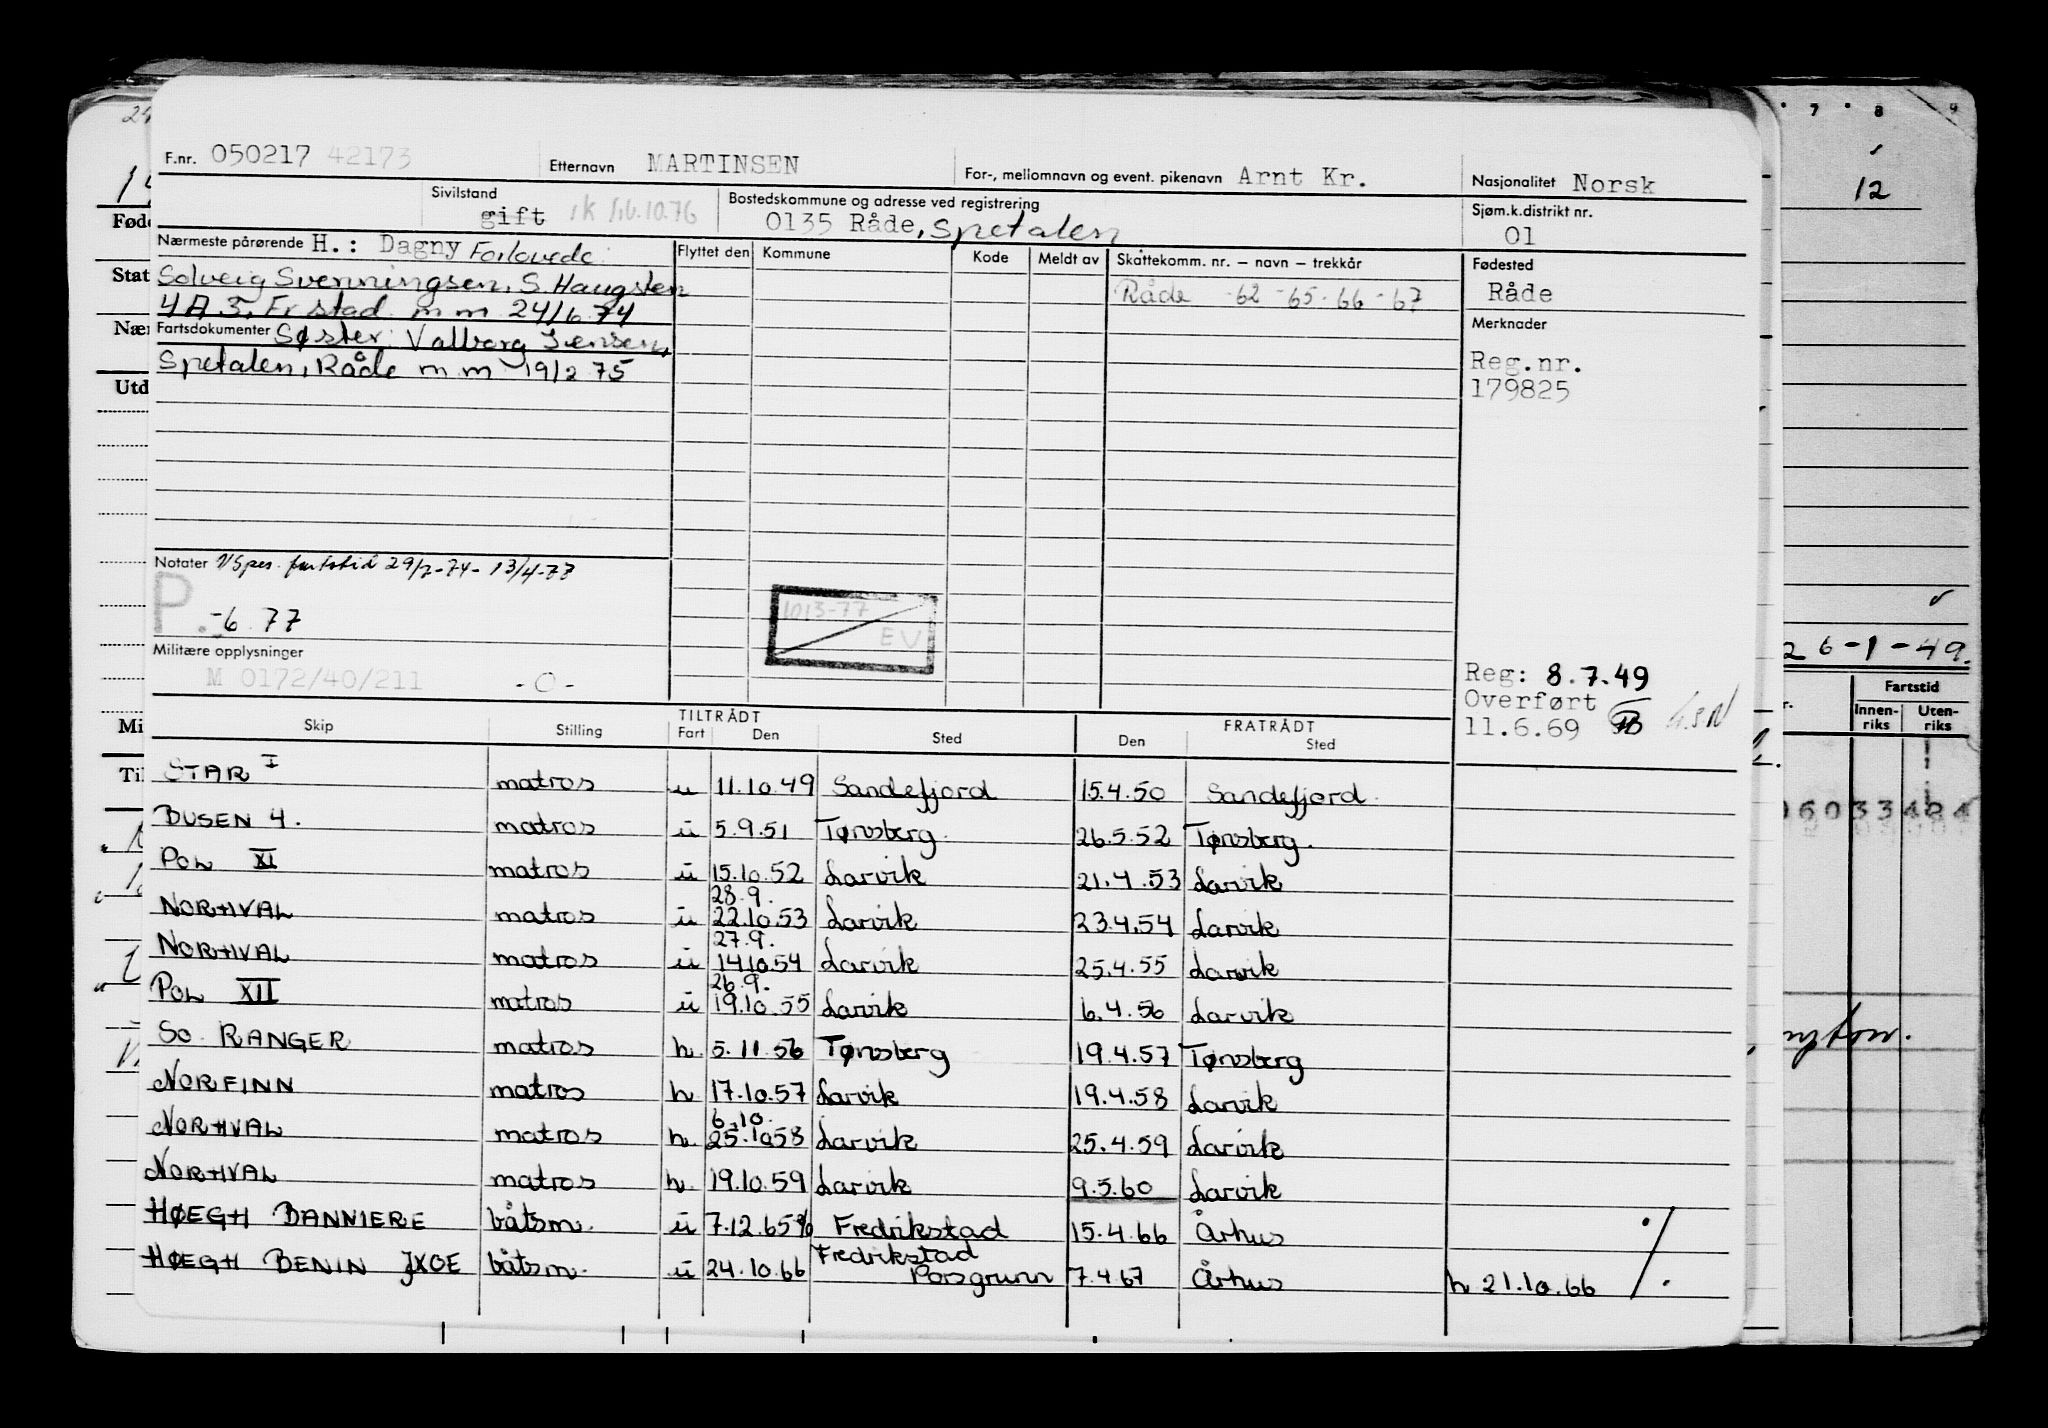 F.nr. 050217 42173 Etternavn MARTINSEN For-, mellomnavn og event. pikenavn Arnt Kr. Nasjonalitet Norsk
Sivilstand gift 16.10.76 Bostedskommune og adresse ved registrering 0135 Råde, Spetalen Sjøm.k.distrikt nr. 01
Nærmeste pårørende H.: Dagny Forlovede: Flyttet den Kommune Kode Meldt av Skattekomm. nr. – navn – trekkår Fødested
Solveig Svenningsen, S. Haugsten Råde -62 -65-66-67 Råde
4 A 3, Fr stad m m 24/6 74 Merknader
Fartsdokumenter Søster: Valborg Jensen,
Spetalen, Råde m m 19/2 75 Reg.nr.
179825
Notater fartstid 29/7-74- 13/4-77
P. -6 77 1013-77 EV
Militære opplysninger
M 0172/40/211 -0-
Reg: 8.7.49
Overført
11.6.69
Skip Stilling TILTRÅDT Fart Den Sted FRATRÅDT Den Sted
STAR I matros u 11.10.49 Sandefjord 15.4.50 Sandefjord
BUSEN 4. matros u 5.9.51 Tønsberg 26.5.52 Tønsberg.
POL XI matros u 15.10.52 Larvik 21.4.53 Larvik
28.9.
NORHVAL matros u 22.10.53 Larvik 23.4.54 Larvik
27.9.
NORHVAL matros u 14.10.54 Larvik 25.4.55 Larvik
26.9.
POL XII matros u 19.10.55 Larvik 6.4.56 Larvik
SO. RANGER matros h 5.11.56 Tønsberg 19.4.57 Tønsberg
NORFINN matros h 17.10.57 Larvik 19.4.58 Larvik
6.10.
NORHVAL matros h 25.10.58 Larvik 25.4.59 Larvik
NORHVAL matros h 19.10.59 Larvik 9.5.60 Larvik
HØEGH BANNIERE båtsm. u 7.12.65 Fredrikstad 15.4.66 Århus
HØEGH BENIN JXOE båtsm. u 24.10.66 Fredrikstad Porsgrunn 7.4.67 Århus h 21.10.66
Fød
Stat
Nær
Utd
Mi
Til
7 8 9
12
26-1-49.
Fartstid
Innen-
riks
Uten-
riks